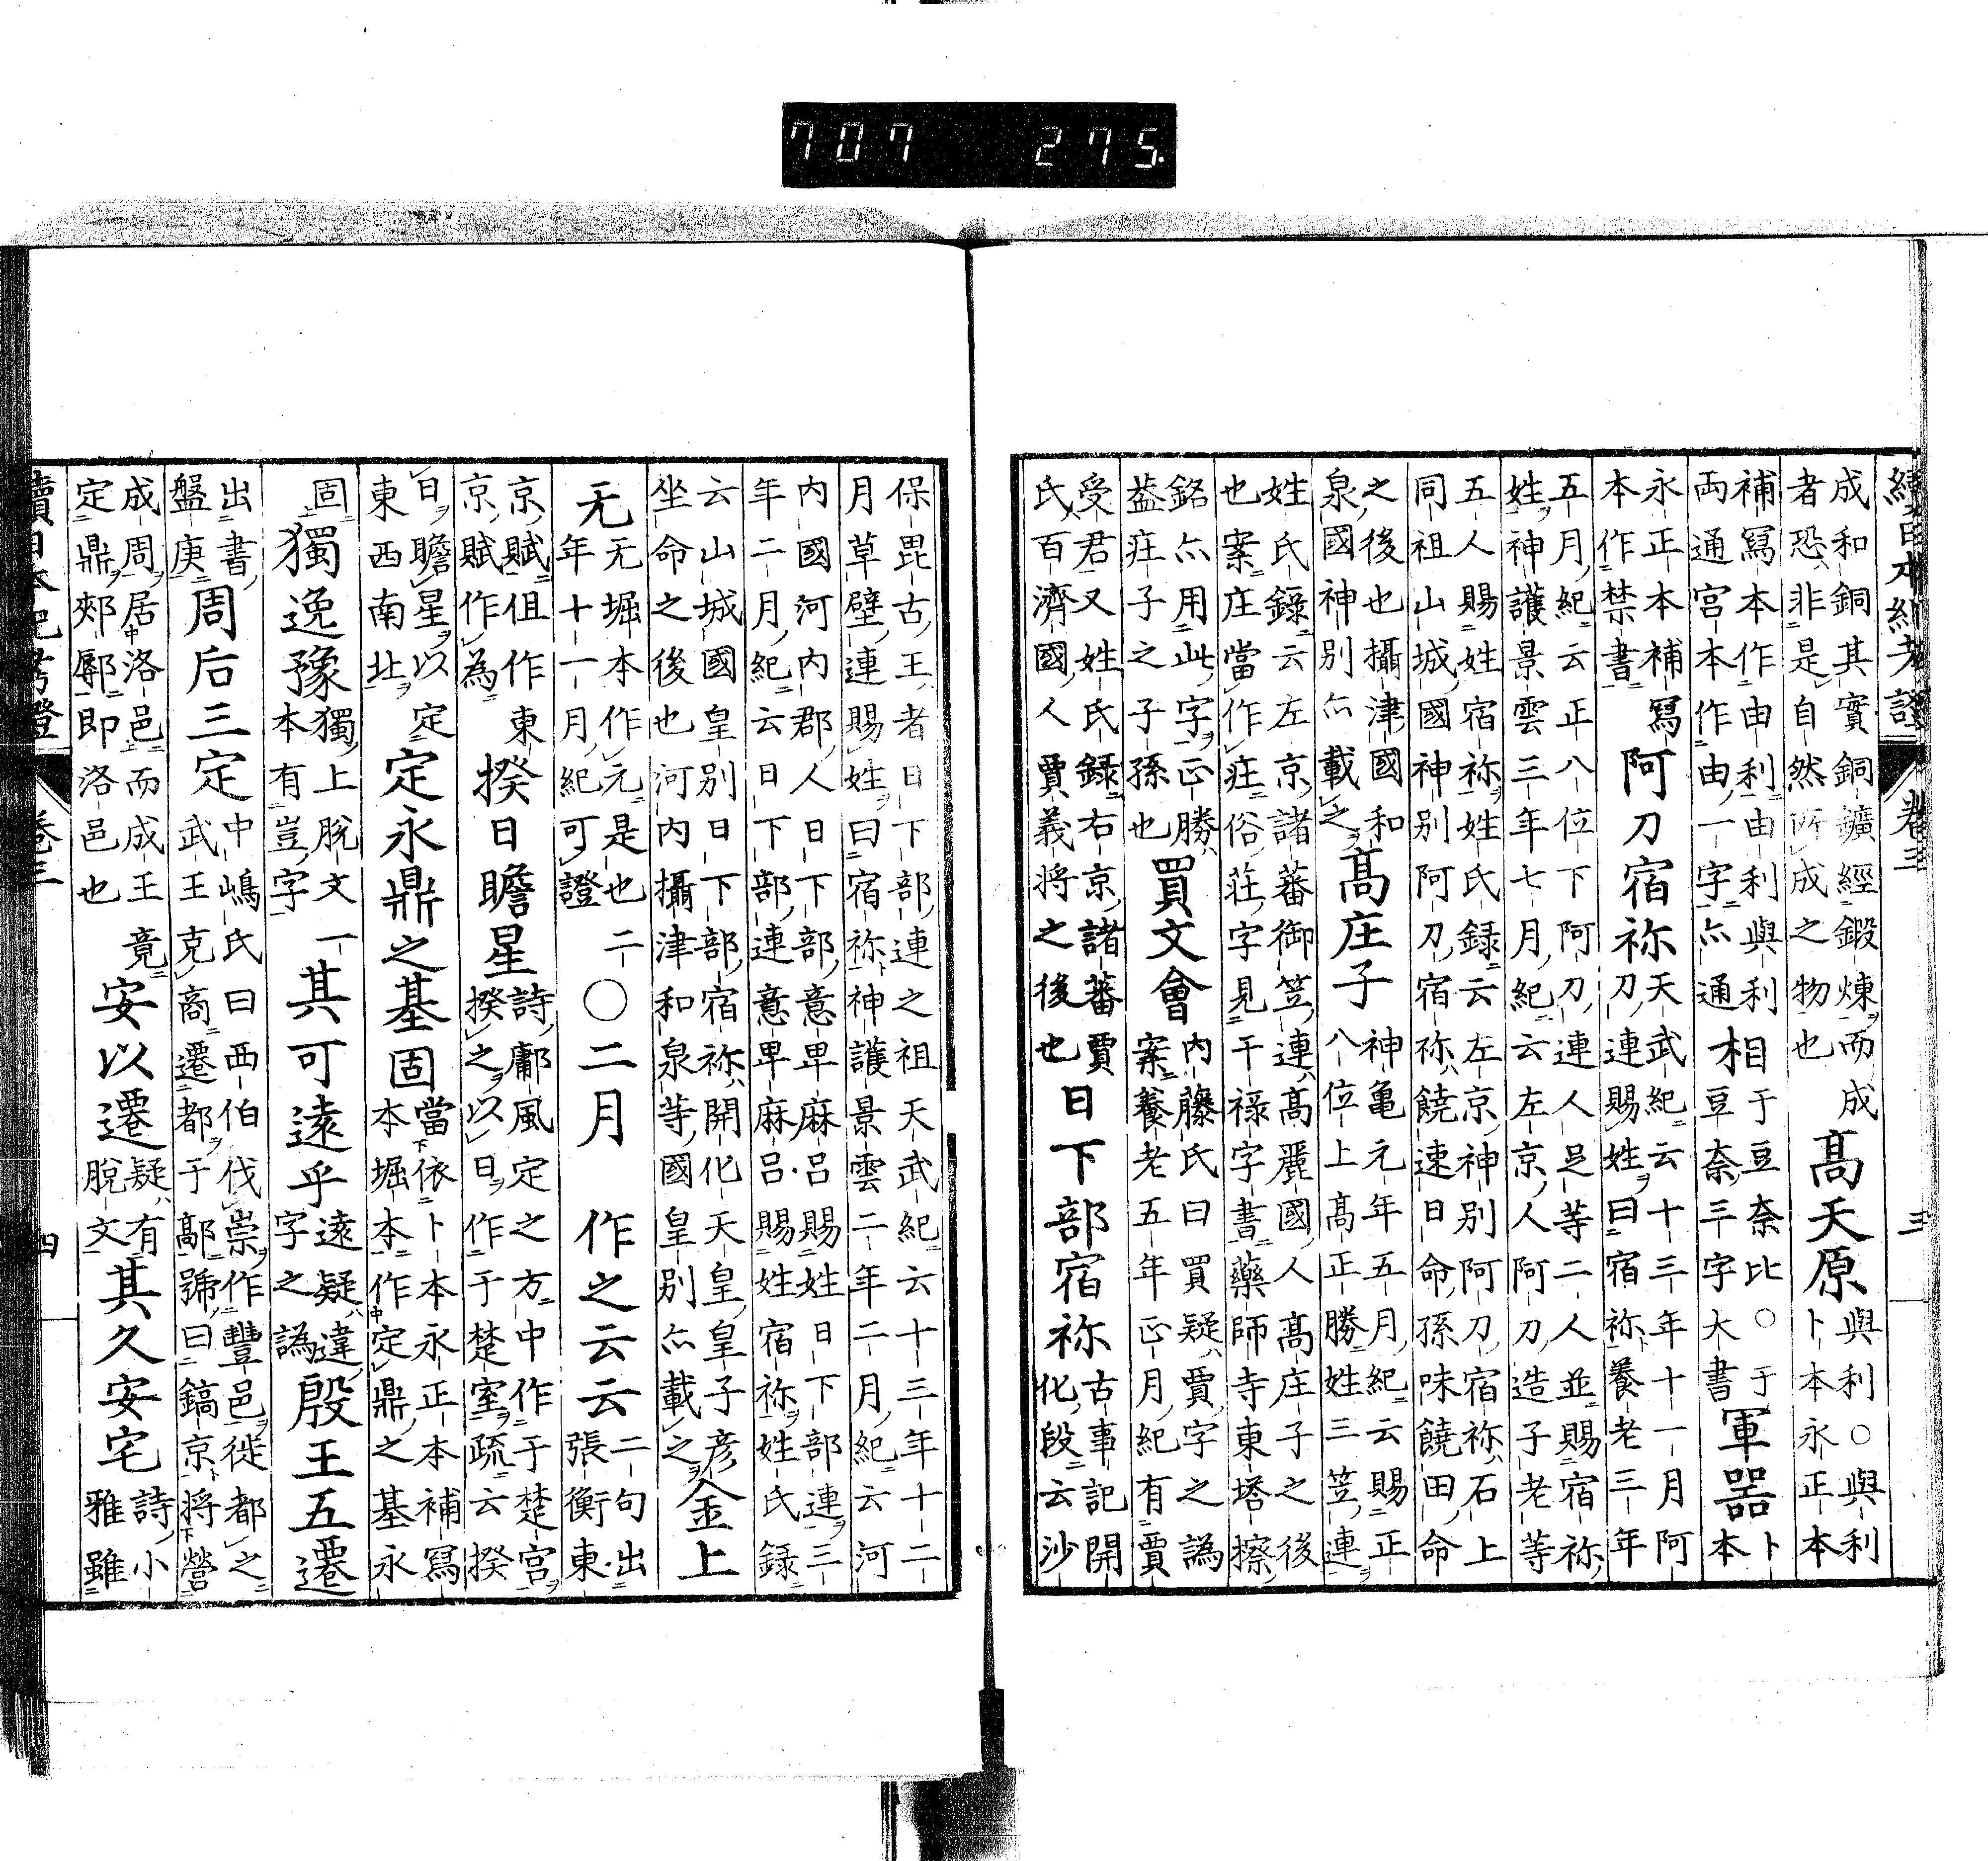 續日本紀考證 卷三 三
成和銅其實銅鑛經鍛煉而成
者恐非是自然所成之物也
高天原
與利○與利
卜本永正本
補寫本作由利由利與利
兩通宮本作由一字亦通
相
于豆奈比○于
豆奈三字大書
軍器
卜
本
永正本補寫
本作禁書
阿刀宿祢
天武紀云十三年十一月阿
刀連賜姓曰宿祢養老三年
五月紀云正八位下阿刀連人足等二人並賜宿祢
姓神護景雲三年七月紀云左京人阿刀造子老等
五人賜姓宿祢姓氏録云左京神別阿刀宿祢石上
同祖山城國神別阿刀宿祢饒速日命孫味饒田命
之後也攝津國和
泉國神別亦載之
高庄子
神亀元年五月紀云賜正
八位上高正勝姓三笠連
姓氏錄云左京諸蕃御笠連高麗國人高庄子之後
也案庄當作㽵俗莊字見干祿字書藥師寺東塔擦
銘亦用此字正勝
葢㽵子之子孫也
買文會
内藤氏曰買疑賈字之譌
案養老五年正月紀有賈
受君又姓氏録右京諸蕃賈
氏百濟國人賈義將之後也
日下部宿祢
古事記開
化段云沙
保毘古王者日下部連之祖天武紀云十三年十二
月草壁連賜姓曰宿祢神護景雲二年二月紀云河
内國河内郡人日下部意卑麻呂賜姓日下部連三
年二月紀云日下部連意卑麻呂賜姓宿祢姓氏録
云山城國皇別日下部宿祢開化天皇皇子彦
坐命之後也河内攝津和泉等國皇別亦載之
金上
无
无堀本作元是也二
年十一月紀可證
○二月 作之云云
二句出
張衡東
京賦但作東
京賦作為
揆日瞻星
詩鄘風定之方中作于楚宮
揆之以日作于楚室疏云揆
日瞻星以定
東西南北
定永鼎之基固
當依卜本永正本補寫
本堀本作定鼎之基永
固
獨逸豫
獨上脫文一
本有豈字
其可遠乎
遠疑違
字之譌
殷王五遷
出書
盤庚
周后三定
中嶋氏曰西伯伐崇作豐邑徙都之
武王克商遷都于鄗號曰鎬京將營
成周居洛邑而成王竟
定鼎郟鄏即洛邑也
安以遷
疑有
脫文
其久安宅
詩小
雅雖
續日本紀考證 卷三 四
707 275